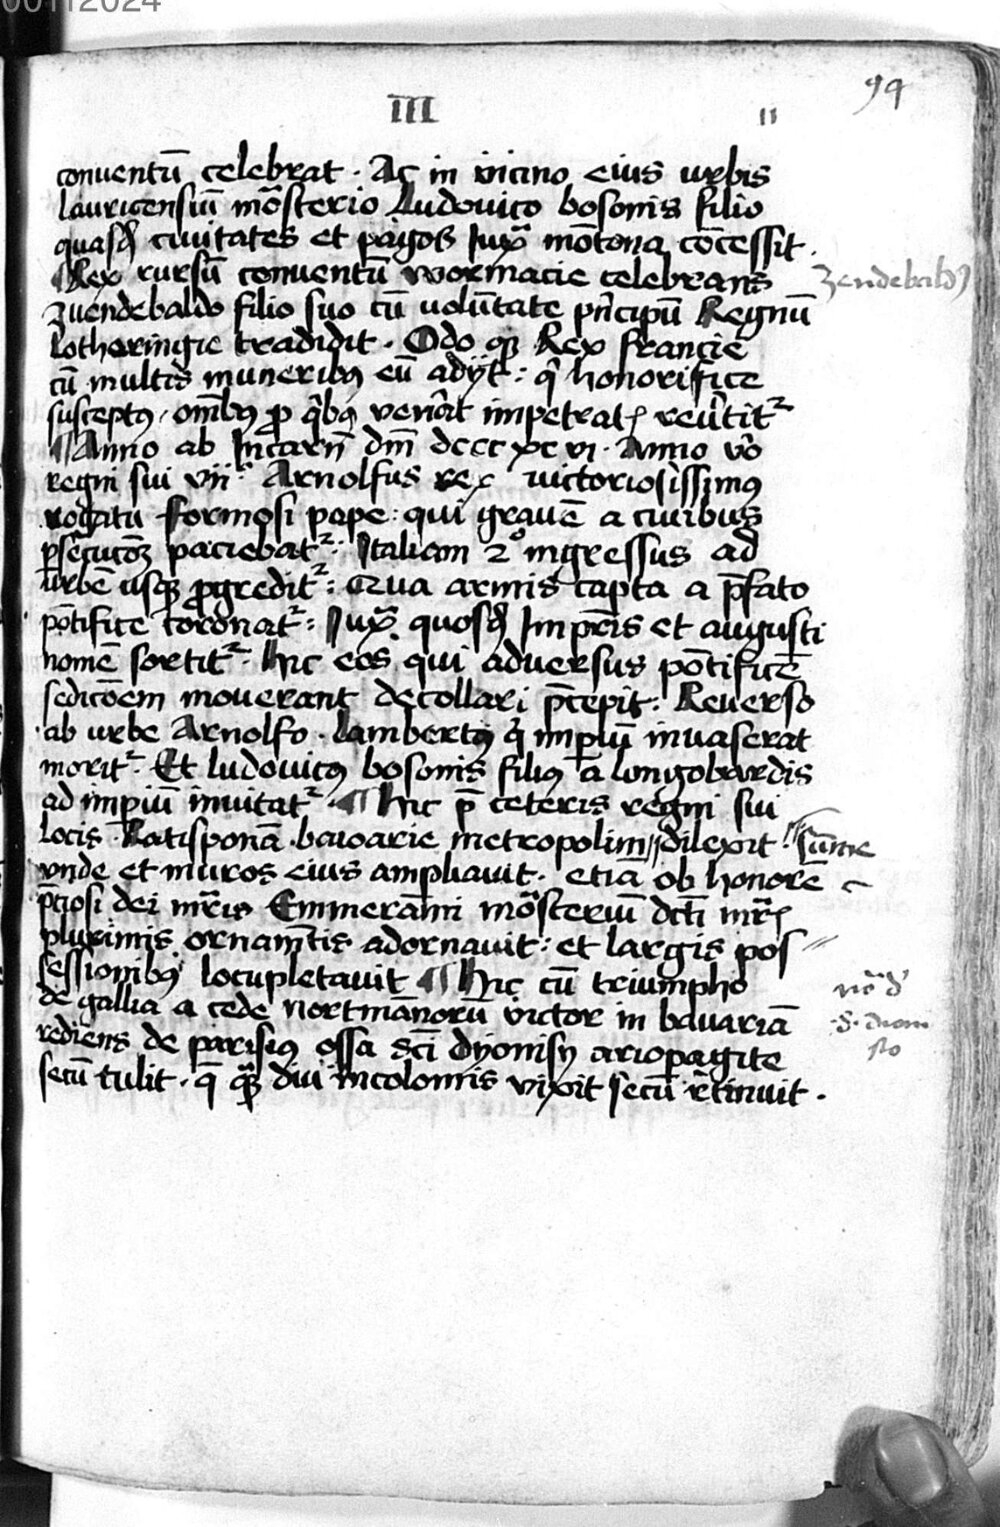 00112024
94
III
11
conuentū celebrat · Ac in vicino eius vrbis
lauricensiū mōsterio Ludouico bosonis filio
quasdā ciuitates et pagos Iuxᵃ mōtona cōcessit ·
Rex rursū conuentū wormacie celebrans
zuendebaldo filio suo cū volūtate pncipū Regnū
lotharingie tradidit · Odo qꝫ Rex francie
cū multis munerib9 eū adijt : q̇ honorifice
suscept9 · omībꝫ ꝓ q̇bꝫ venāt impetratꝭ reūtit²
Anno ab Incarn̄ dn̄i dccc xc vi · Anno vō
regni sui vii · Arnolfus rex victoriosissim9
rogatu formosi pape : qui grauē a ciuibus
ꝑsecucōꝫ paciebat² : Italiam 2° ingressus ad
vrbē usqꝫ ꝓgredit² : Qua armis capta a p̄fato
pōtifice coronat² : Iuxᵃ quosdā Impis et augusti
nomē sortit² · Hic eos qui aduersus pōtificē
sedicōem mouerant decollari p̄cepit : Reuerso
ab vrbe Arnolfo · Lambert9 q̇ impiū inuaserat
morit² · Et ludouic9 bosonis fili9 a longobardis
ad impiū inuitat² · Hic p̄ ceteris regni sui
locis Ratisponā bauoarie metropolim dilexit · sūme
vnde et muros eius ampliauit · etiā ob honorē
p̄ciosi dei mr̄is Emmerāmi mōsteriū dcī mr̄ꝭ
plurimis ornamētis adornauit : et largis pos
sessionib9 locupletauit Hic cū triumpho
de gallia a cede nortmānorū victor in bauariā
rediens de parisi9 ossa scī dyonisij ariopagite
secū tulit · q̄ qᵃꝫ diu incolomis vixit secū rētinuit ·
zendebald9
nō d'
· S · dioni
sio